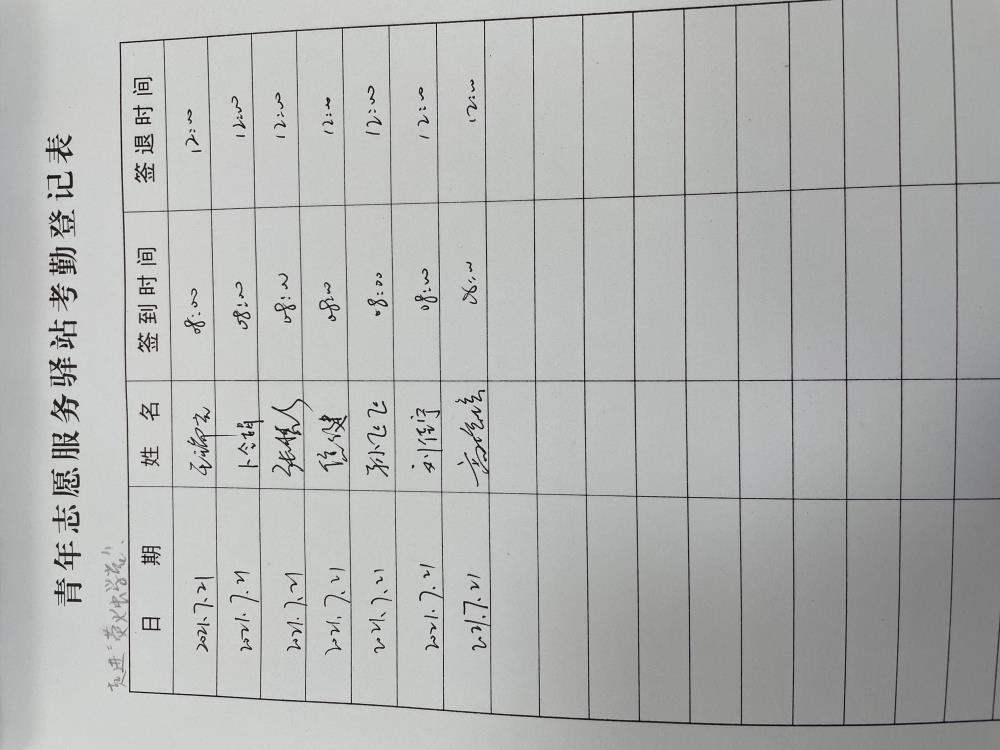 青年志愿服务驿站考勤登记表
走进“萤火虫学堂”
日 期 姓 名 签到时间 签退时间
2021.7.21 08:00 12:00
2021.7.21 卜令娟 08:00 12:00
2021.7.21 08:00 12:00
2021.7.21 徐健 08:00 12:00
2021.7.21 孙飞飞 08:00 12:00
2021.7.21 刘佳宁 08:00 12:00
2021.7.21 08:00 12:00